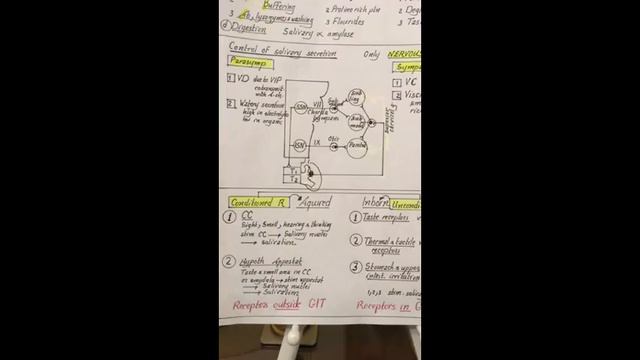 Buffering
2 Protein rich plat
2 Deg
3 Ab, lysozymes & washing
3 Fluorides
3 Tas
d Digestion Salivary α amylase
Control of salivary secretion Only NERVOUS
Parasymp
Sympa
1 VD due to VIP
cotransmit
with A-ch.
1 VC
2 Watery secretion
high in electrolyte
low in organic
2 Visc
sm
ric
SSN VII
Chorda tympani
Sub ling
Sub mand
ISN IX Otic Parotid
Superior cervical g
T1
T2
Conditioned R Aquired
Inborn Uncondi
1 CC
Sight, Smell, hearing & thinking
stim CC → Salivary nuclei
→ salivation
1 Taste receptors
2 Thermal & tactile
receptors
2 Hypoth Appostat
Taste & small area in CC
or amydala → stim appostat
→ Salivary nuclei
→ Salivation
3 Stomach & upper
intest. irritation
1,2,3 stim. saliva
Receptors outside GIT
Receptors in G